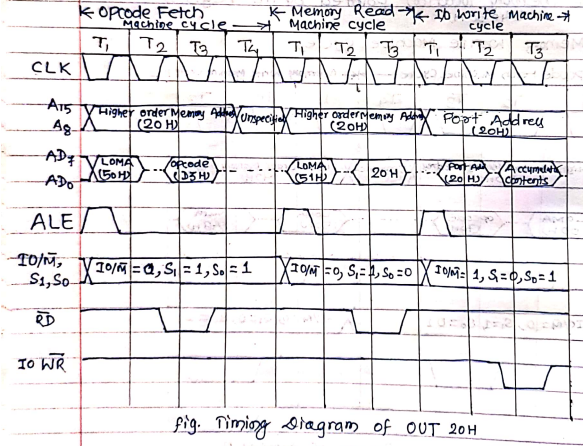 Opcode Fetch Machine cycle
Memory Read Machine cycle
I/O Write Machine cycle
T1 T2 T3 T4 T1 T2 T3 T1 T2 T3
CLK
A15
A8
Higher order Memory Address (20H)
Unspecified
Higher order Memory Address (20H)
Port Address (20H)
AD7
AD0
LOMA (50H)
Opcode (D3H)
LOMA (51H)
20H
Port Add (20H)
Accumulator contents
ALE
IO/M̅,
S1,S0
IO/M̅ = 0, S1 = 1, S0 = 1
IO/M̅ = 0, S1 = 1, S0 = 0
IO/M̅ = 1, S1 = 0, S0 = 1
R̅D̅
IO W̅R̅
fig. Timing Diagram of OUT 20H